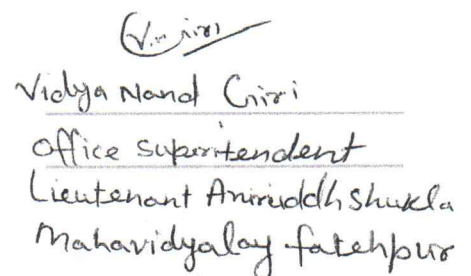 V.n Giri
Vidya Nand Giri
office superitendent
Lieutenant Aniruddh Shukla
Mahavidyalay fatehpur